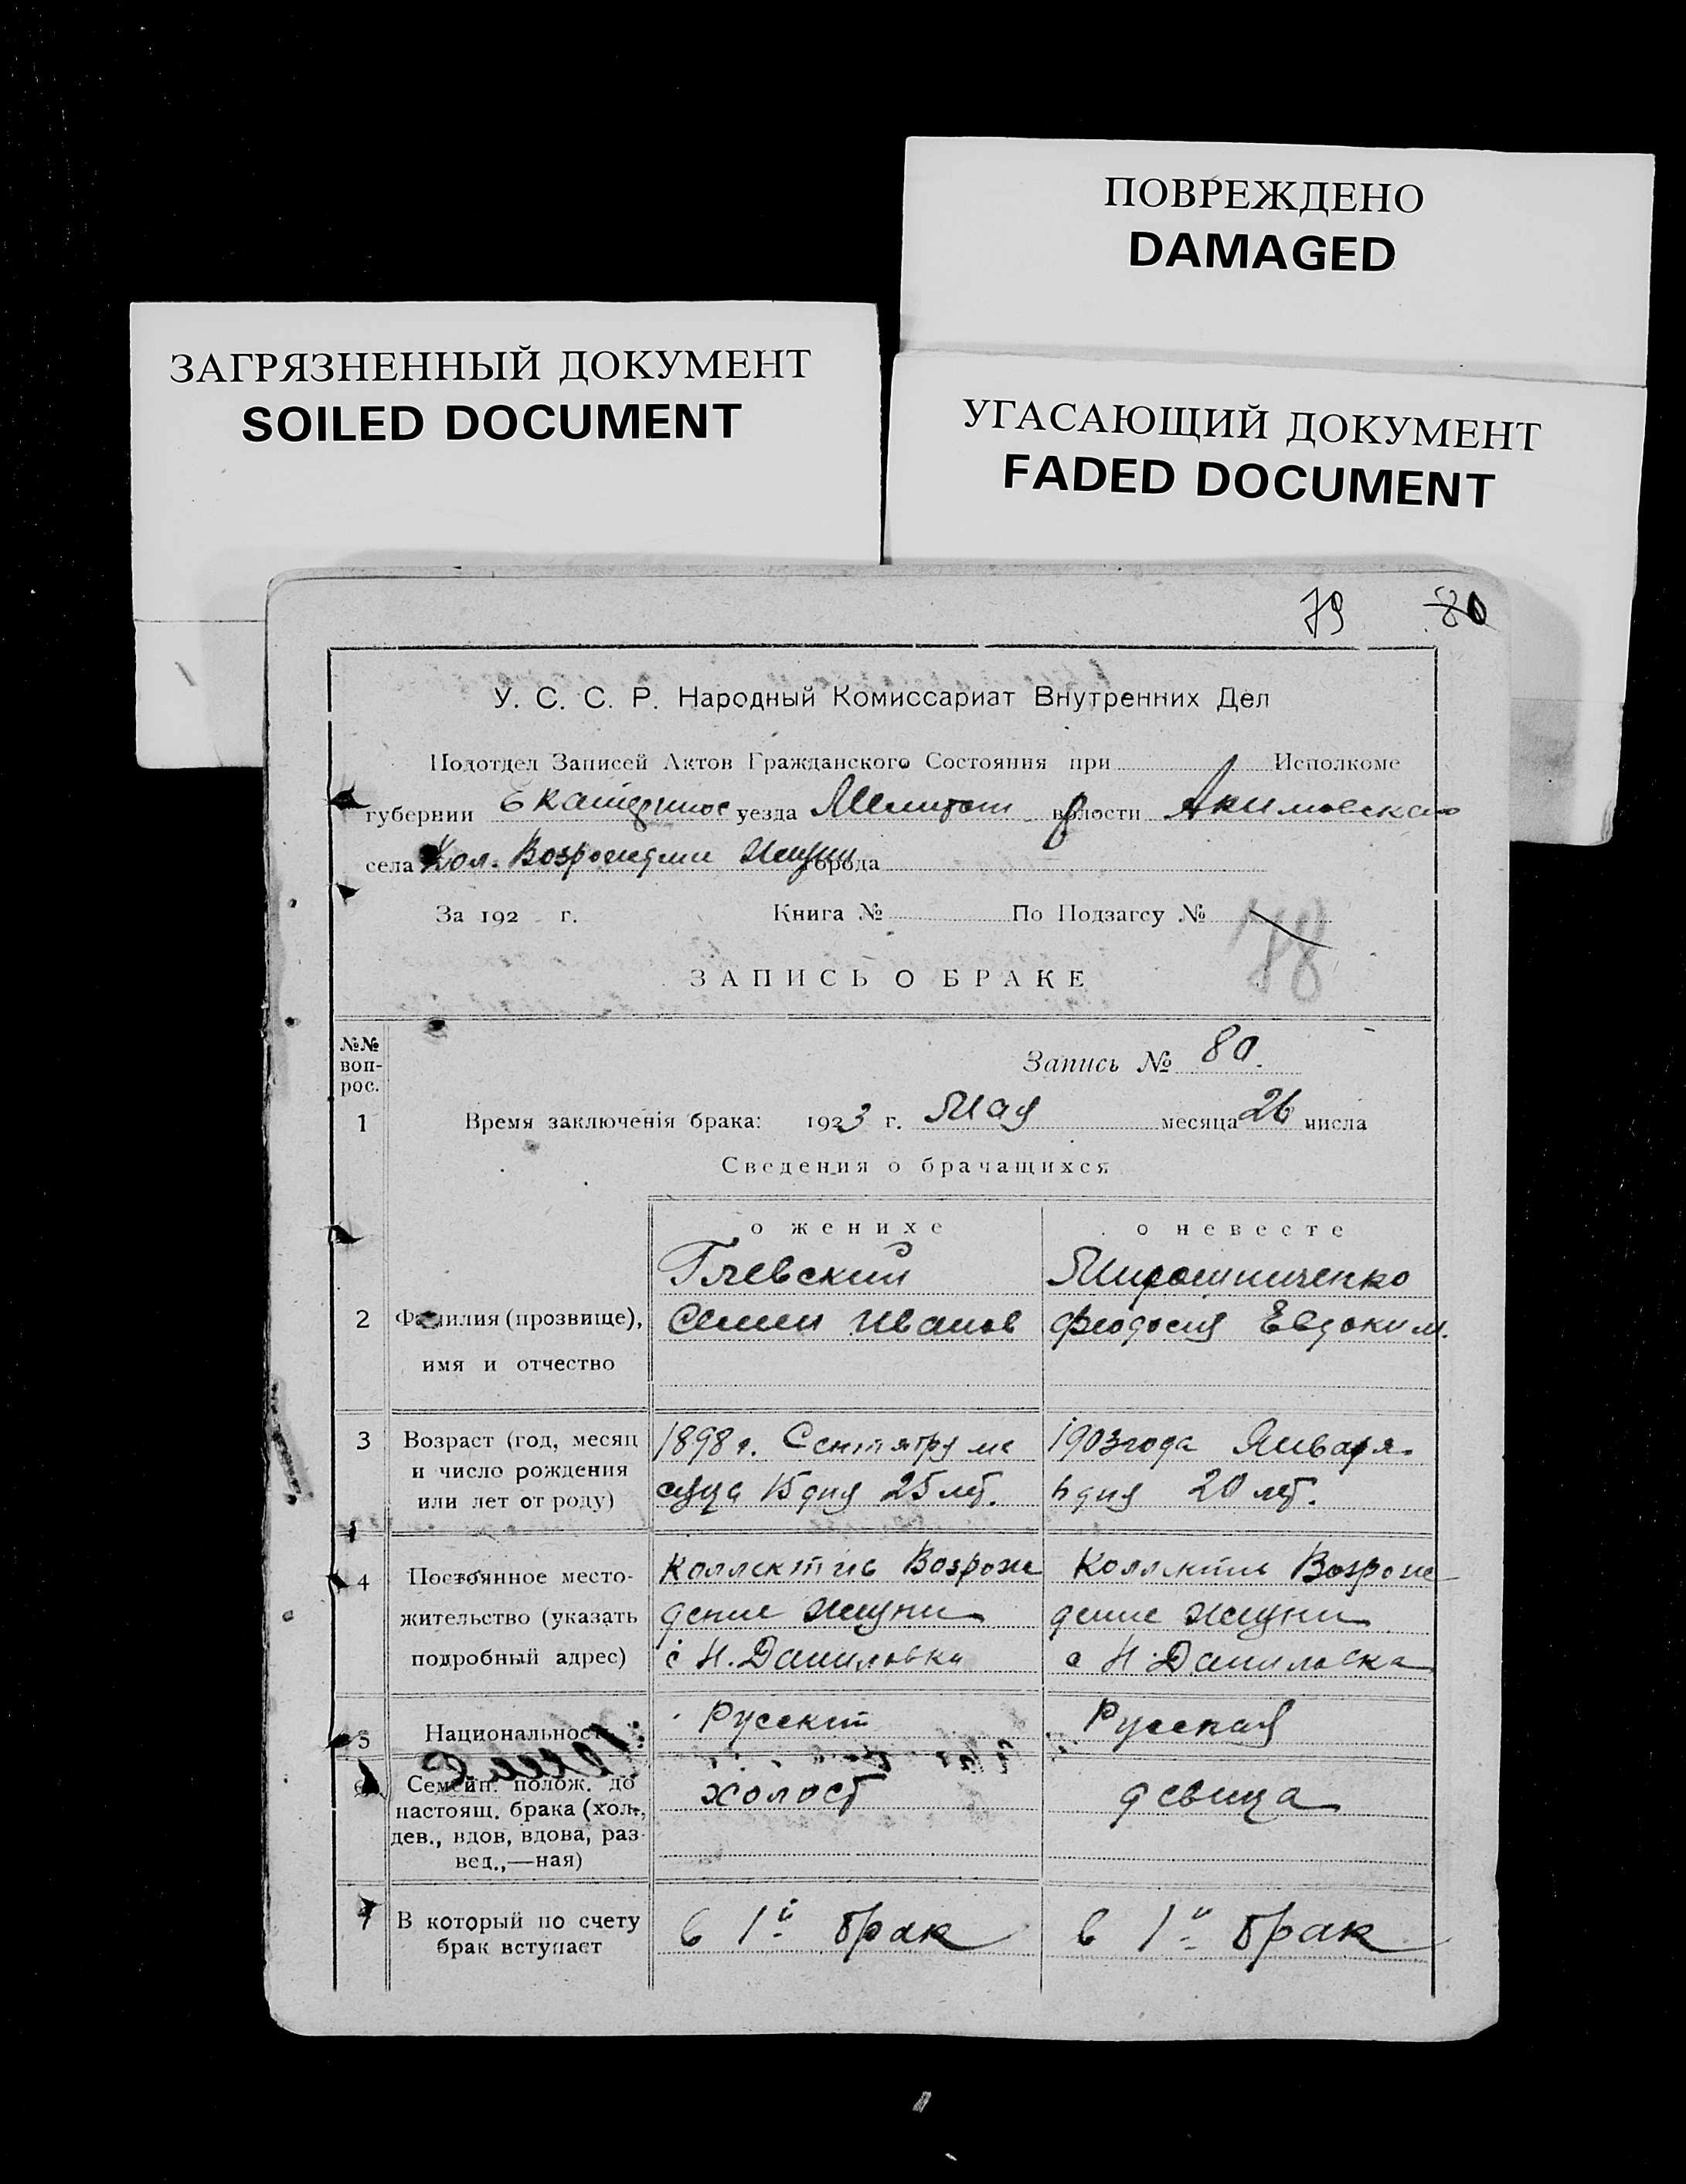 ПОВРЕЖДЕНО
DAMAGED
ЗАГРЯЗНЕННЫЙ ДОКУМЕНТ
SOILED DOCUMENT
УГАСАЮЩИЙ ДОКУМЕНТ
FADED DOCUMENT
79 80
У. С. С. Р. Народный Комиссариат Внутренних Дел
Подотдел Записей Актов Гражданского Состояния при Исполкоме
губернии Екатеринос уезда Мелитоп волости Акимовская
села Кол. Возрождении Жизни города
За 192 г. Книга № По Подзагсу №
78
ЗАПИСЬ О БРАКЕ
№№ воп-рос.
Запись № 80.
1 Время заключенія брака: 1923 г. Мая месяца 26 числа
Сведения о брачащихся
о женихе о невесте
Глевский Мирошниченко
2 Фамилия (прозвище), Семен Иванов Феодосия Евдоким.
имя и отчество
3 Возраст (год, месяц 1898 г. Сентябру ме 1903 года Января
и число рождения сяца 15 дня 25 лет. 6 дня 20 лет.
или лет от роду)
4 Постоянное место- Коллектив Возрож Коллектив Возрож
жительство (указать дение жизни дение жизни
подробный адрес) с Н. Даниловка с Н. Даниловка
5 Национальность Русский Русская
6 Семейн. полож. до холост девица
настоящ. брака (хол.,
дев., вдов, вдова, раз-
вед.,—ная)
7 В который по счету в 1й брак в 1й брак
брак вступает